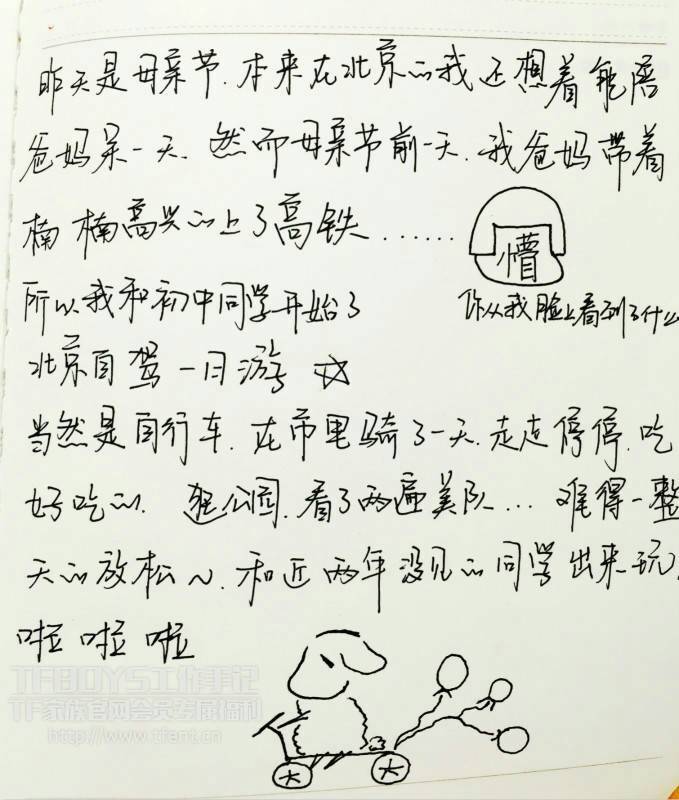 昨天是母亲节.本来在北京的我还想着能陪
爸妈呆一天.然而母亲节前一天.我爸妈带着
楠楠高兴的上了高铁……
懵
你从我脸上看到了什么
所以我和初中同学开始了
北京自驾一日游
当然是自行车.在市里骑了一天.走走停停.吃
好吃的.逛公园.看了两遍美队...难得一整
天的放松~.和近两年没见的同学出来玩.
啦啦啦
TFBOYS工作手记
TF家族官网会员专属福利
http://www.tfent.cn
大 大